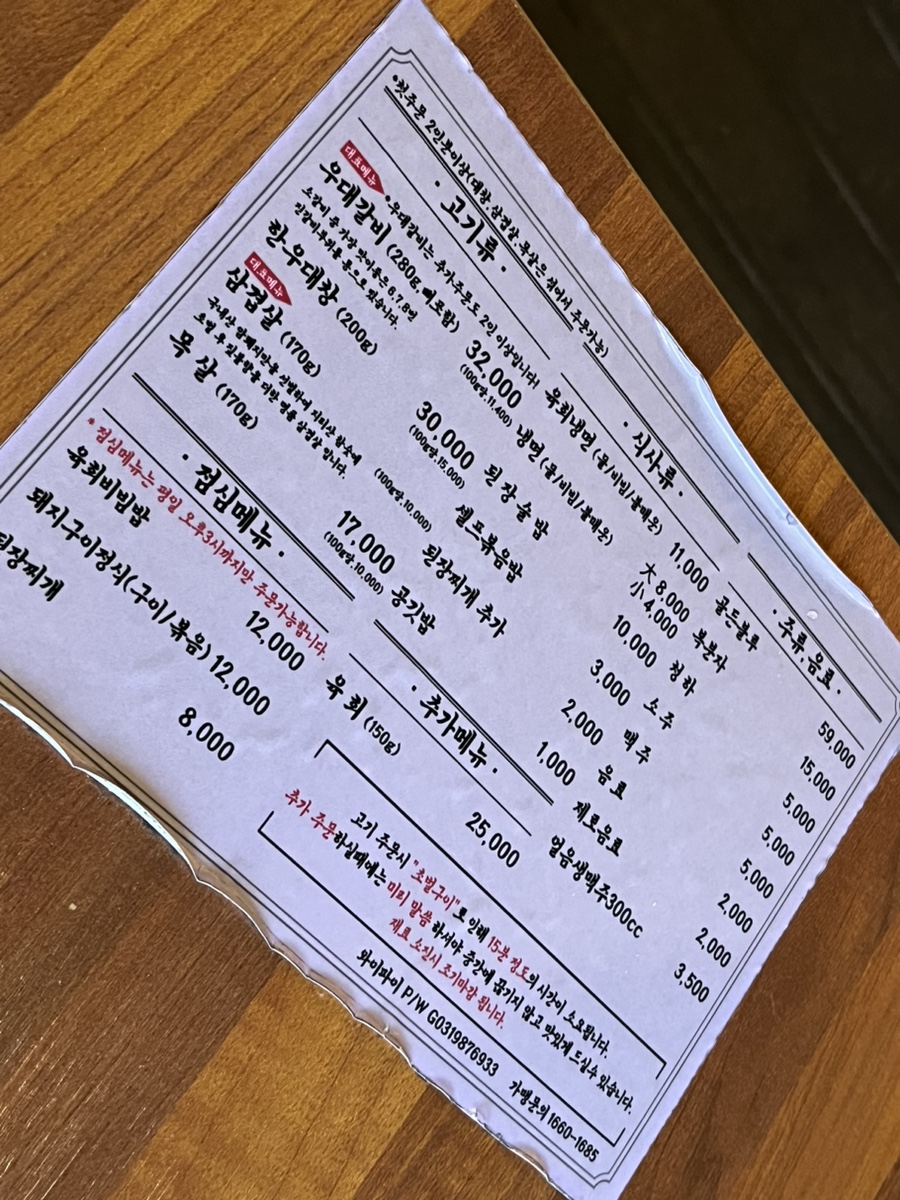 •첫주문 2인분이상(대창,삼겹살,목살은 섞어서 주문가능)
· 고기류 ·
•우대갈비는 추가주문도 2인 이상입니다!
대표메뉴
우대갈비 (280g 뼈포함) 32,000
(100g당:11,400)
소갈비 중 가장 맛이좋은 6,7,8번
진갈비부위를 통으로 썼습니다.
한우대창 (200g) 30,000
(100g당:15,000)
대표메뉴
삼겹살 (170g)
(100g당:10,000)
국내산 암퇘지만을 선별하여
숙성 입니다.
목 살 (170g) 17,000
(100g당:10,000)
· 점심메뉴 ·
* 점심메뉴는 평일 오후3시까지만 주문가능합니다.
육회비빔밥 12,000
돼지구이정식(구이/볶음) 12,000
된장찌개 8,000
· 식사류 ·
육회냉면 (물/비빔/불매운) 11,000
냉면 (물/비빔/불매운) 大 8,000
小 4,000
된장술밥 10,000
셀프볶음밥 3,000
된장찌개 추가 2,000
공깃밥 1,000
· 추가메뉴 ·
육 회 (150g) 25,000
· 주류,음료 ·
골든블루 59,000
복분자 15,000
청하 5,000
소주 5,000
맥주 5,000
음료 2,000
제로음료 2,000
얼음생맥주300cc 3,500
고기 주문시 "초벌구이"로 인해 15분 정도의 시간이 소요됩니다.
추가 주문하실때에는 미리 말씀하셔야 중간에 끊기지 않고 맛있게 드실수 있습니다.
재료 소진시 조기마감 됩니다.
와이파이 P/W G0319876933 가맹문의 1660-1685